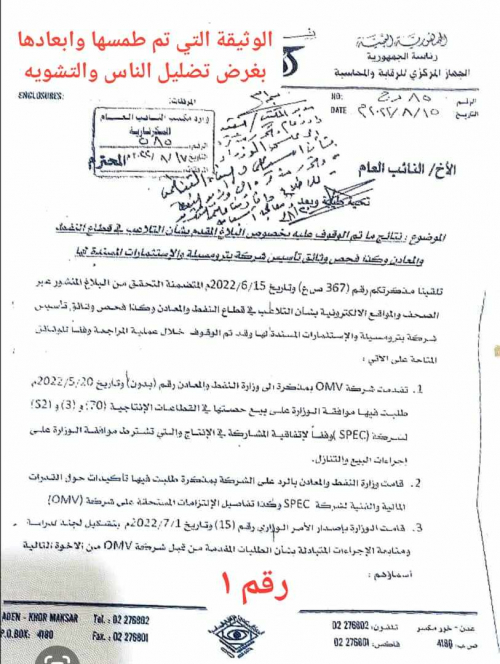 الوثيقة التي تم طمسها وابعادها
بغرض تضليل الناس والتشويه
الجمهورية اليمنية
رئاسة الجمهورية
الجهاز المركزي للرقابة والمحاسبة
ENCLOSURES:
المرفقات:
NO:
الرقم
DATE
التاريخ
وارد مكتب النائب العام
السكرتارية
الرقم
التاريخ
الأخ/ النائب العام
المحترم
تحية طيبة وبعد
الموضوع : نتائج ما تم الوقوف عليه بخصوص البلاغ المقدم بشأن التلاعب في قطاع النفط
والمعادن وكذا فحص وثائق تأسيس شركة بترومسيلة والاستثمارات المسندة لها
تلقينا مذكرتكم رقم (367 ص ع) وتاريخ 2022/6/15م المتضمنة التحقق من البلاغ المنشور عبر
الصحف والمواقع الالكترونية بشأن التلاعب في قطاع النفط والمعادن وكذا فحص وثائق تأسيس
شركة بترومسيلة والإستثمارات المسندة لها وقد تم الوقوف خلال عملية المراجعة وفقاً للوثائق
المتاحة على الآتي :
1. تقدمت شركة OMV بمذكرة الى وزارة النفط والمعادن رقم (بدون) وتاريخ 2022/5/20م
طلبت فيها موافقة الوزارة على بيع حصتها في القطاعات الإنتاجية (70) و (3) و (S2)
لشركة (SPEC) وفقاً لإتفاقية المشاركة في الإنتاج والتي تشترط موافقة الوزارة على
إجراءات البيع والتنازل.
2. قامت وزارة النفط والمعادن بالرد على الشركة بمذكرة طلبت فيها تأكيدات حول القدرات
المالية والفنية لشركة SPEC وكذا تفاصيل الإلتزامات المستحقة على شركة (OMV)
3. قامت الوزارة بإصدار الأمر الوزاري رقم (15) وتاريخ 2022/7/1م بتشكيل لجنة لدراسة
ومتابعة الإجراءات المتبادلة بشأن الطلبات المقدمة من قبل شركة OMV من الاخوة التالية
أسماؤهم :
رقم ١
ADEN - KHOR MAKSAR
Tel. : 02 276802
P.O.BOX: 4180
Fax. : 02 276801
عدن - خور مكسر
تلفون: 276802 02
ص.ب: 4180
فاكس: 276801 02